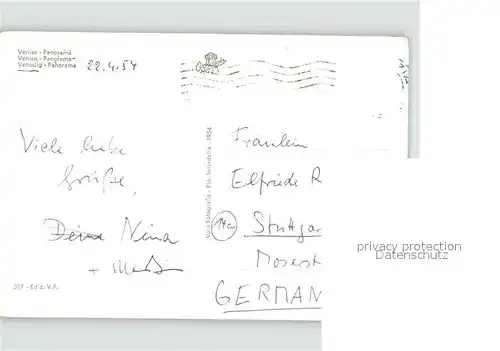 Venise - Panorama
Venice - Panorama
Venedig - Panorama
22.4.54
Viele liebe
Grüße,
Deine Nina
+
317 - Ediz. V.F.
Vera Fotografia - Rip. interdetta - 1954
Fräulein
Elfriede R
14a Stuttgar
Moserst
GERMAN
privacy protection
Datenschutz